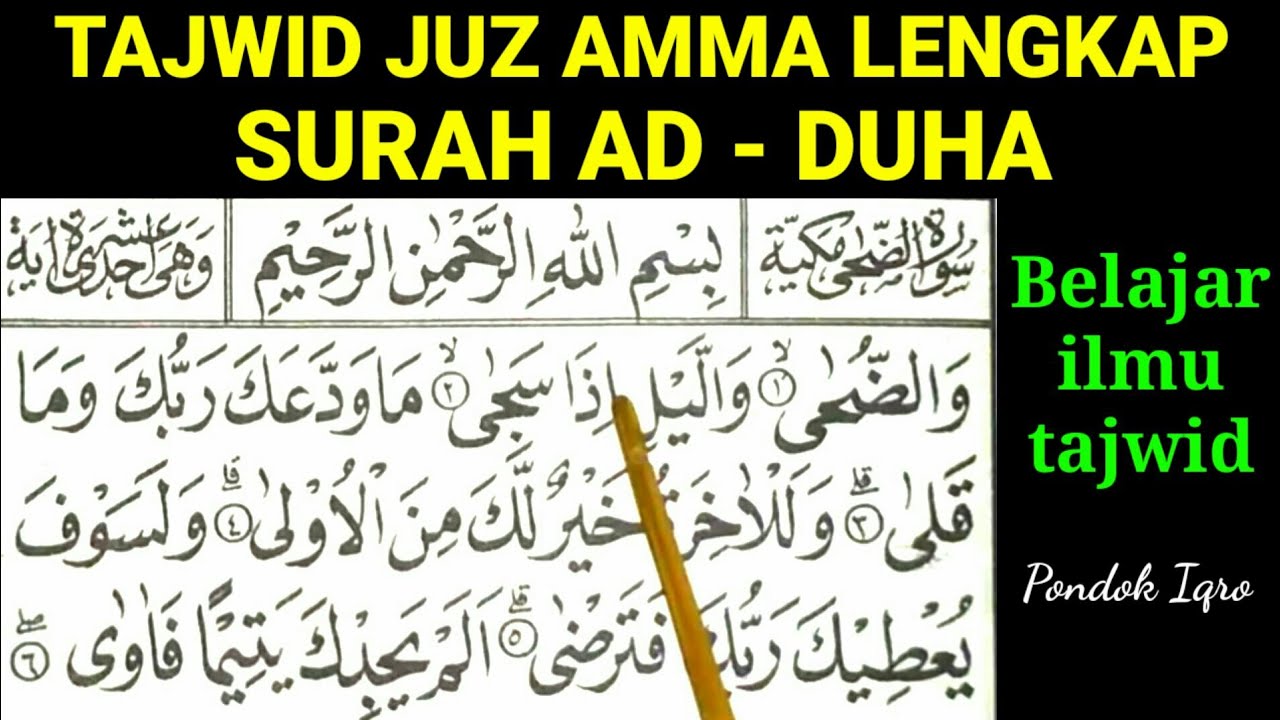 TAJWID JUZ AMMA LENGKAP
SURAH AD - DUHA
سُوْرَةُ الضُّحٰى مَكِّيَّةٌ
بِسْمِ اللّٰهِ الرَّحْمٰنِ الرَّحِيْمِ
وَهِىَ اِحْدٰى عَشْرَةَ اٰيَةً
وَالضُّحٰى ۙ﴿١﴾ وَالَّيْلِ اِذَا سَجٰى ۙ﴿٢﴾ مَا وَدَّعَكَ رَبُّكَ وَمَا
قَلٰى ۗ﴿٣﴾ وَلَلْاٰخِرَةُ خَيْرٌ لَّكَ مِنَ الْاُوْلٰى ۗ﴿٤﴾ وَلَسَوْفَ
يُعْطِيْكَ رَبُّكَ فَتَرْضٰى ۗ﴿٥﴾ اَلَمْ يَجِدْكَ يَتِيْمًا فَاٰوٰى ۖ﴿٦﴾
Belajar
ilmu
tajwid
Pondok Iqro